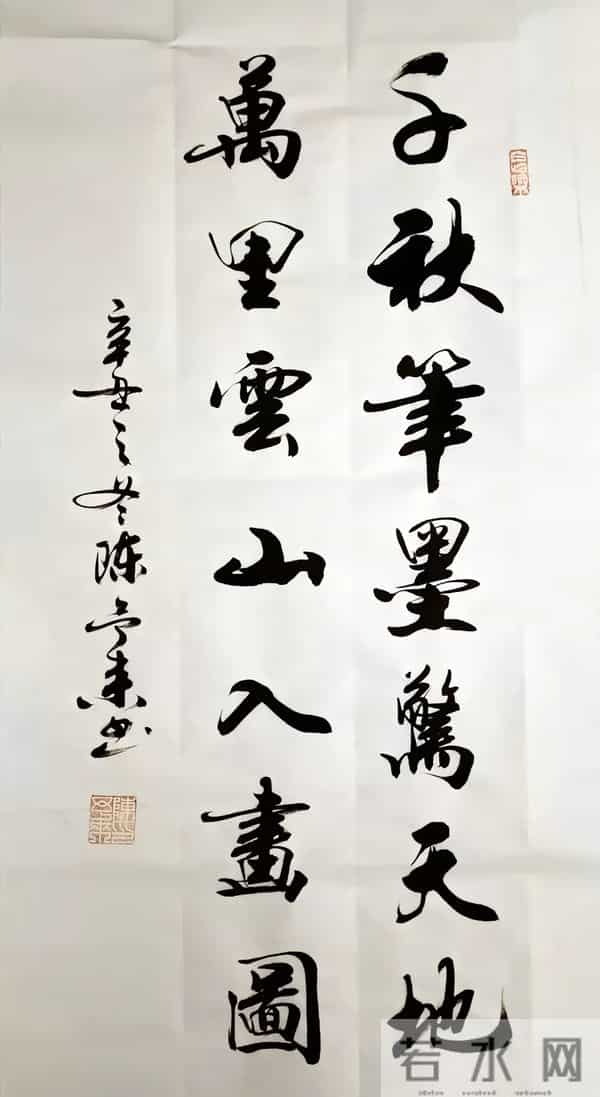 千秋筆墨驚天地
萬里雲山入畫圖
辛丑之冬陳
書
若水网